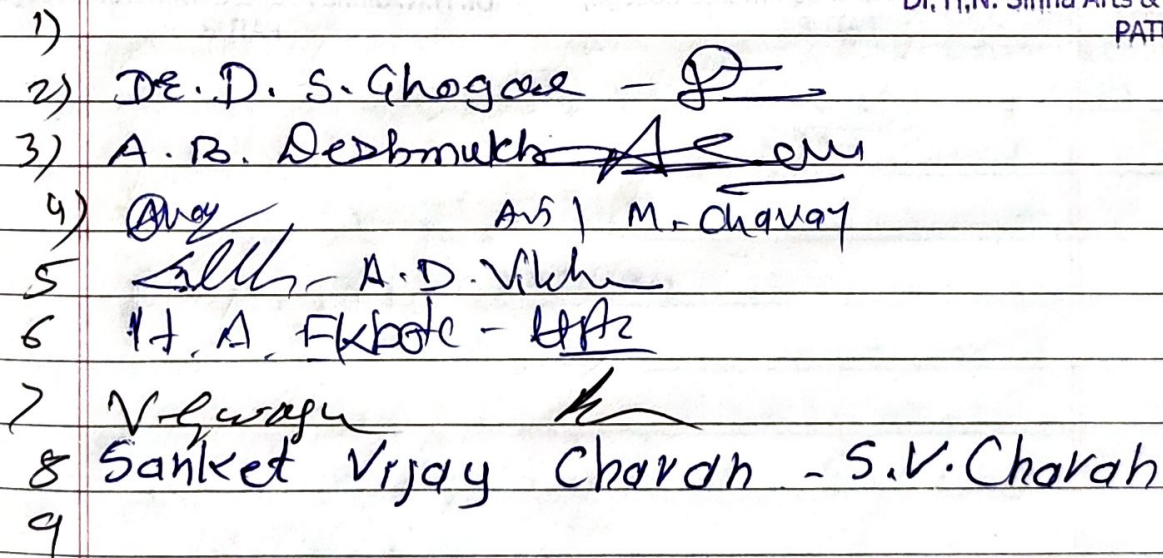 Dr. H.N. Sinha Arts &
PAT
1)
2) DR. D. S. Ghogare -
3) A. B. Deshmukh
4) M. Chavan
5 - A. D. Vikhe
6 H. A. Ekbote - HAE
7
8 Sanket Vijay Chavan - S.V. Chavan
9